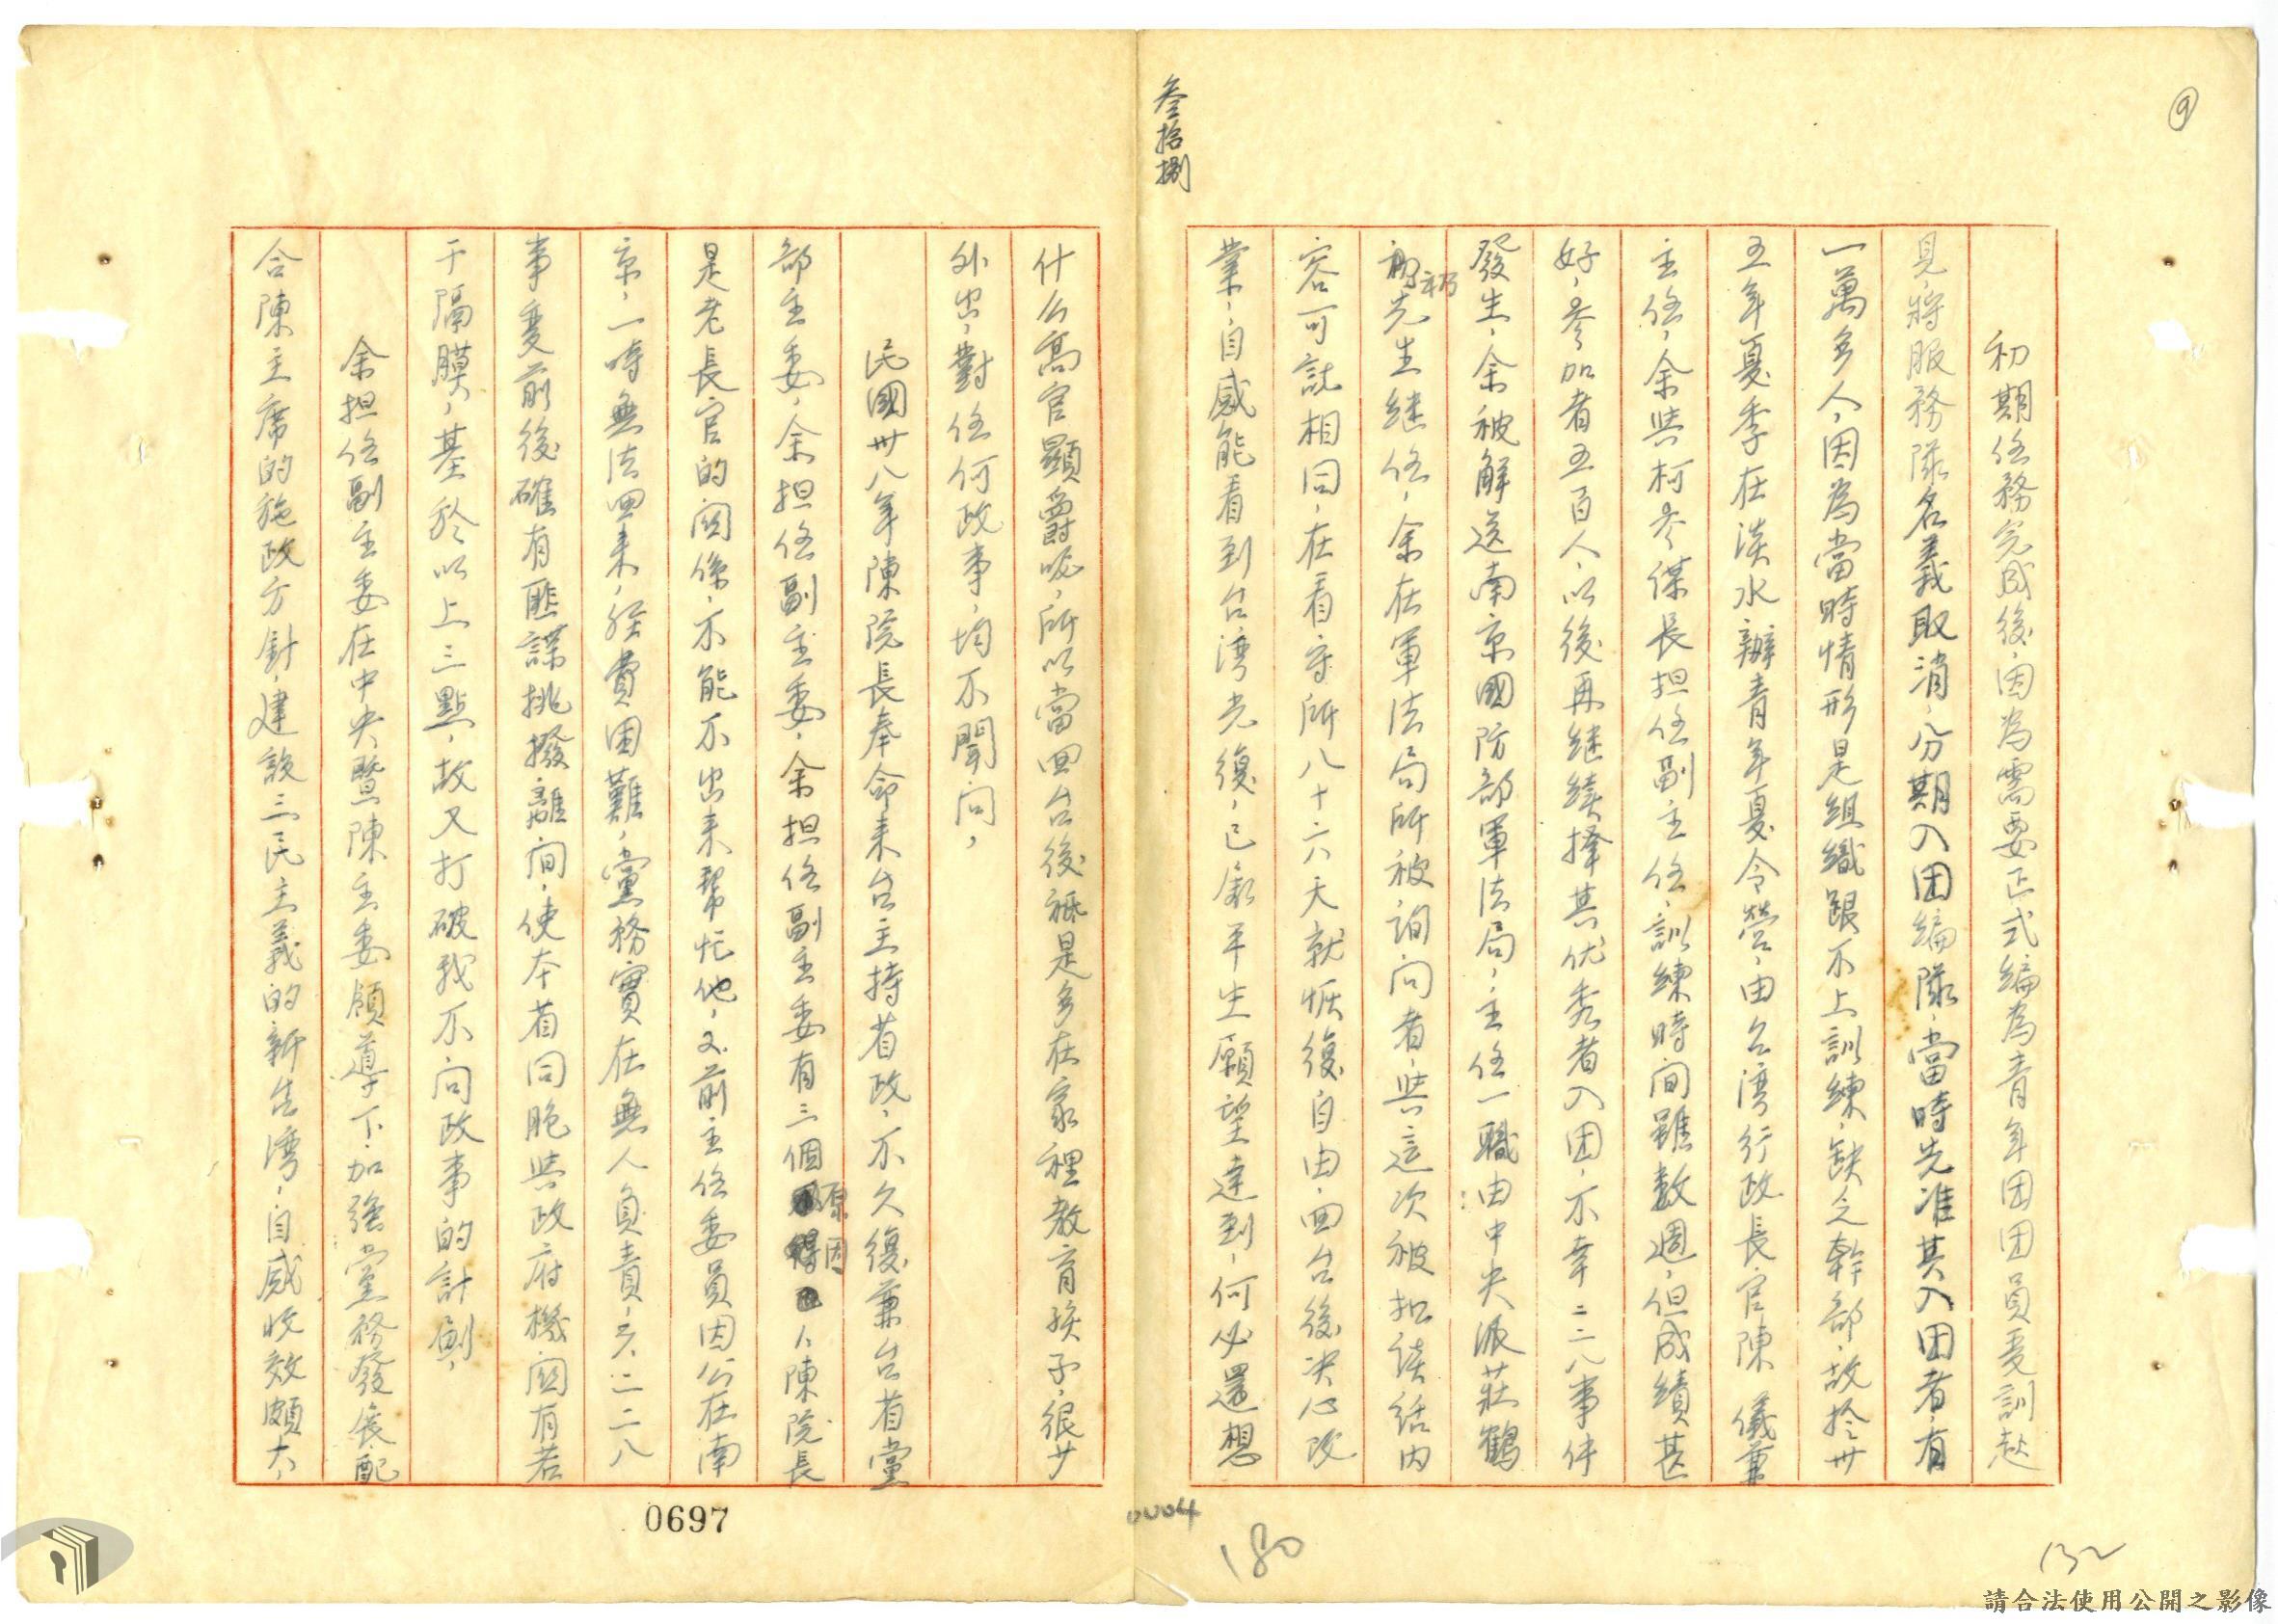 ⑨
叁拾捌
初期任務完成後，因為需要正式編為青年团团員受訓起
見，將服務隊名義取消，分期入团編隊，當時先准其入团者，有
一萬多人，因為當時情形是組織跟不上訓練，缺乏幹部，故於卅
五年夏季在淡水辦青年夏令營，由台湾行政長官陳儀兼
主任，余與柯參謀長担任副主任，訓練時间雖數週，但成績甚
好，參加者五百人，以後再继續擇其优秀者入团，不幸二二八事件
發生，余被解送南京國防部軍法局，主任一職由中央派莊鶴
礽先生继任，余在軍法局所被詢问者，與這次被扣談話內
容可說相同，在看守所八十六天就恢復自由，回台後决心改
業，自感能看到台湾光復，已嚴平生願望達到，何必還想
什么高官顯爵呢，所以當回台後祗是多在家裡教育孩子，很少
外出，對任何政事，均不聞问，
民國卅八年陳院長奉命来台主持省政，不久復兼台省黨
部主委，余担任副主委，余担任副主委有三個原因1、陳院長
是老長官的関係，不能不出来幫忙他，2、前主任委員因公在南
京，一時無法回来，經費困難，黨務實在無人負責，3、二二八
事变前後確有匪諜挑撥離间，使本省同胞與政府機関有若
干隔膜，基於以上三點，故又打破我不问政事的計劃，
余担任副主委在中央暨陳主委領導下，加强黨務發展，配
合陳主席的施政方針，建設三民主義的新台湾，自感收效頗大，
0697
0004
180
132
請合法使用公開之影像